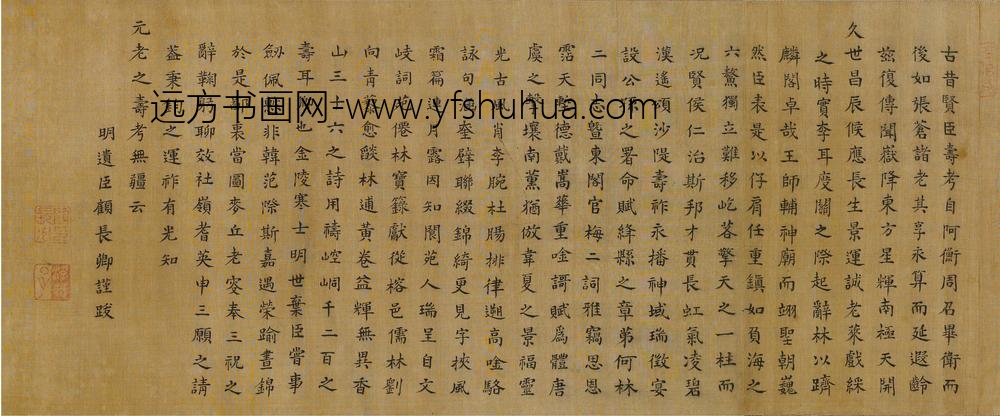 古昔賢臣壽考自阿衡周召畢衛而
後如張蒼諸老其孚永算而延遐齡
茲復傳聞嶽降東方星輝南極天開
久世昌辰候應長生景運誠老萊戲綵
之時實李耳度關之際起辭林以躋
麟閣卓哉王師輔神廟而翊聖朝巍
然臣表是以仔肩任重鎮如負海之
六鰲獨立難移屹若擎天之一柱而
況賢侯仁治斯邦才貫長虹氣凌碧
漢遙須沙隄壽祚永播神域瑞徵宴
設公之署命賦絳縣之章第何林
二同暨東閣官梅二詞雅竊恩恩
霑天德戴嵩華重唫謌賦爲體唐
虞之壤南薰猶倣韋夏之景福靈
光古肖李腕杜腸排律遡高唫駱
詠句壁聯綴錦綺更見字挾風
霜篇連月露因知閬苑人瑞呈自文
岐詞僊林寶籙獻從榕邑儒林劉
向青藜愈燄林逋黃卷益輝無異香
山三十六之詩用禱崆峒千二百之
壽耳也金陵寒士明世棄臣嘗事
劒佩非韓范際斯嘉遇榮踰晝錦
於是裏當圖麥丘老叟奏三祝之
辭鞠聊效社嶺耆英申三願之請
益秉之運祚有光知
元老之壽考無疆云
明遺臣顧長卿謹跋
远方书画网-www.yfshuhua.com